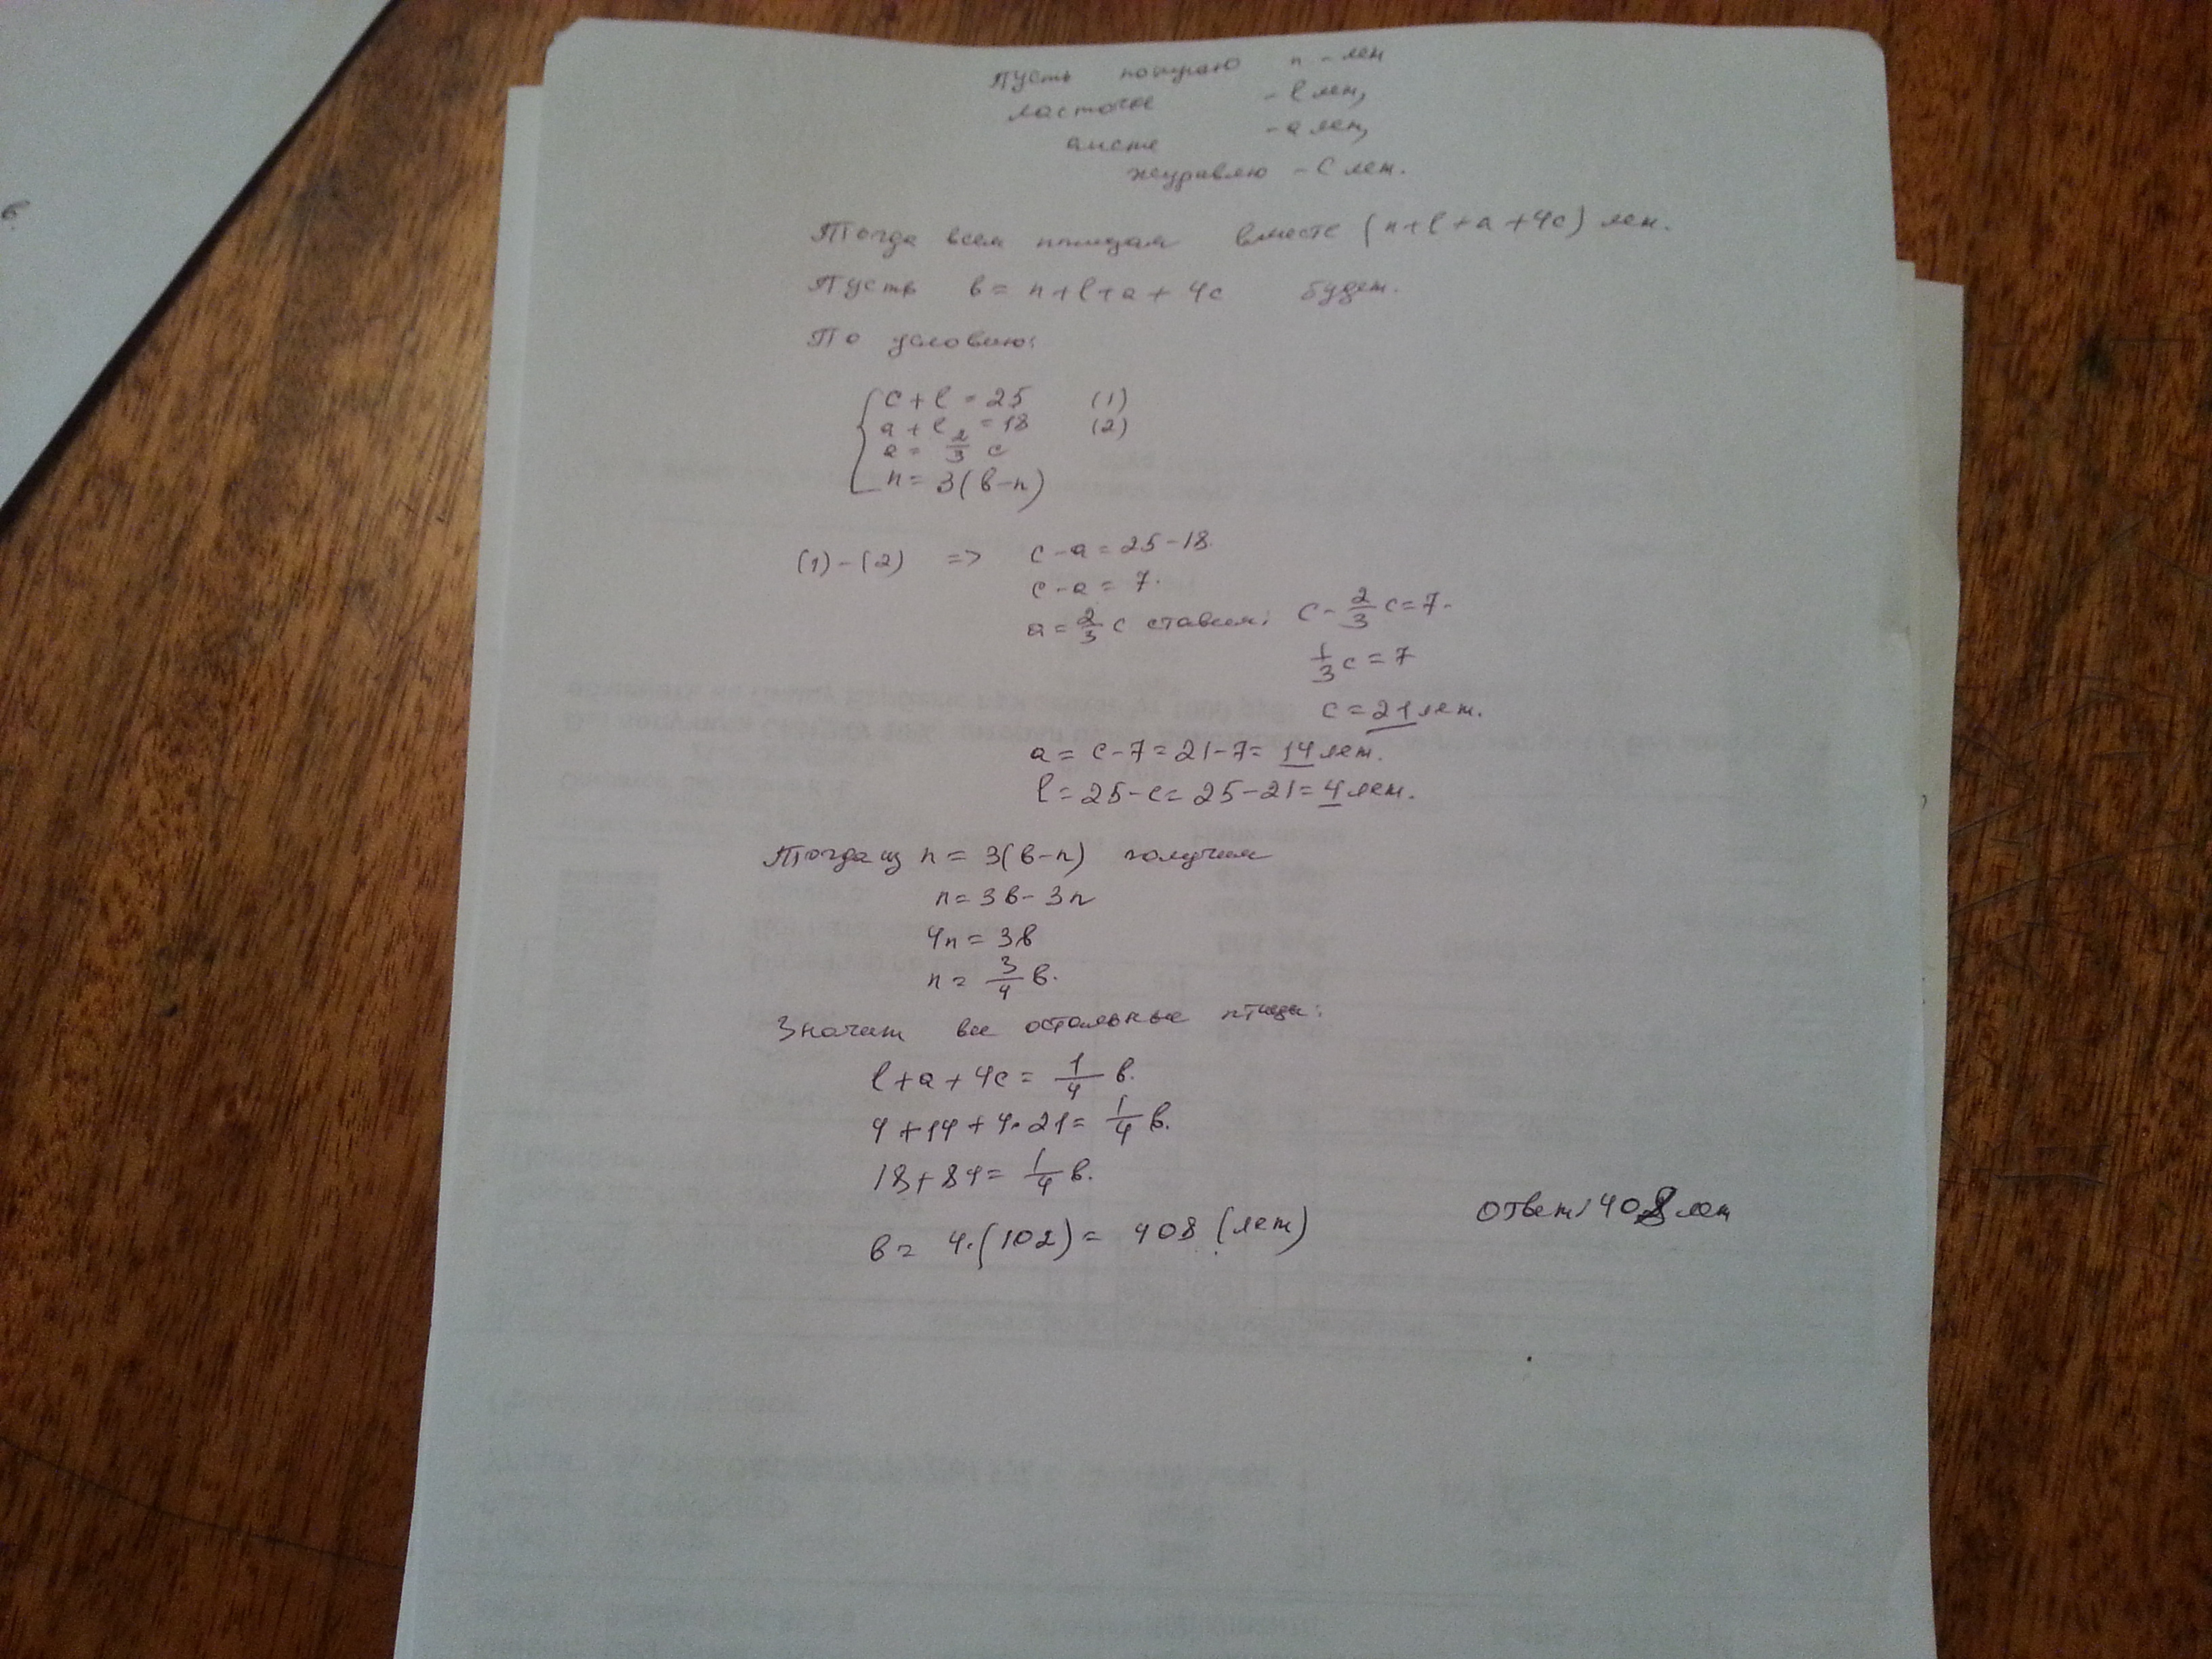 Пусть попугаю n - лет
ласточке - l лет,
аисту - a лет,
журавлю - C лет.
Тогда всем птицам вместе (n+l+a+4c) лет.
Пусть в = n+l+a+4c будет.
По условию:
c+l=25 (1)
a+l=18 (2)
a = 2/3 c
n = 3(в-n)
(1)-(2) => c-a=25-18.
c-a = 7.
a = 2/3 c ставим: C - 2/3 c = 7.
1/3 c = 7
c = 21 лет.
a = c-7 = 21-7 = 14 лет.
l = 25-c = 25-21 = 4 лет.
Тогда из n = 3(в-n) получим
n = 3в - 3n
4n = 3в
n = 3/4 в.
Значит все остальные птицы:
l+a+4c = 1/4 в.
4+14+4·21 = 1/4 в.
18+84 = 1/4 в.
в = 4·(102) = 408 (лет)
Ответ: 408 лет